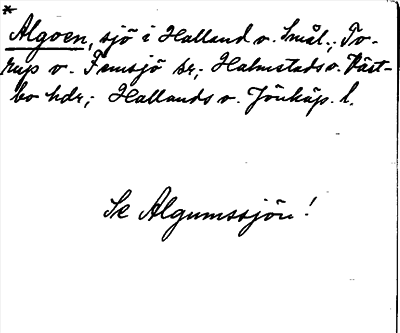 *
Algoen, sjö i Halland o. Smål.; To-
rup o. Femsjö sr; Halmstads o. Väst-
bo hdr; Hallands o. Jönköp. l.
Se Algumssjön!